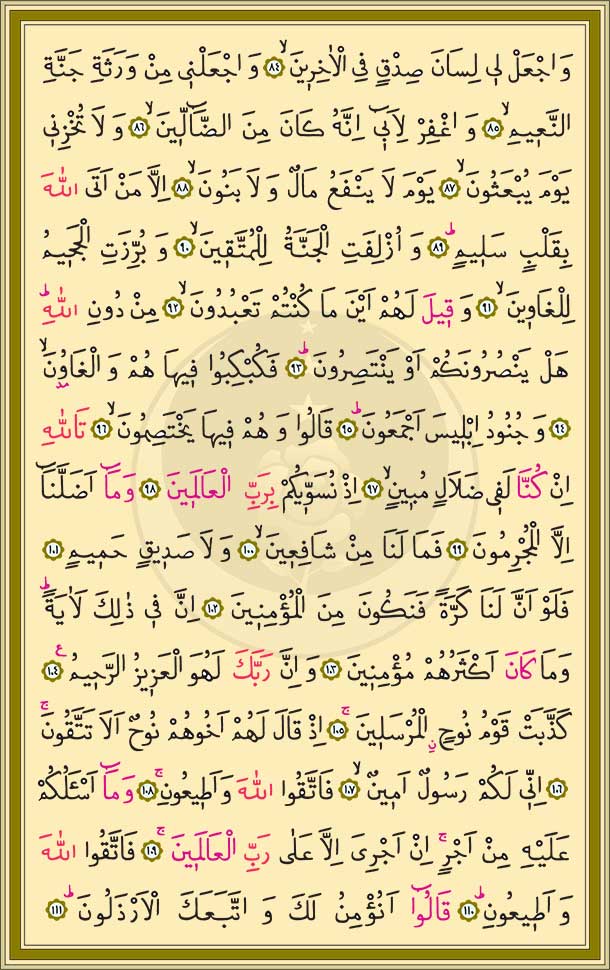 وَاجْعَلْ ل۪ي لِسَانَ صِدْقٍ فِي الْاٰخِر۪ينَۙ ﴿٨٤﴾ وَاجْعَلْن۪ي مِنْ وَرَثَةِ جَنَّةِ
النَّع۪يمِۙ ﴿٨٥﴾ وَاغْفِرْ لِاَب۪ٓي اِنَّهُ كَانَ مِنَ الضَّٓالّ۪ينَۙ ﴿٨٦﴾ وَلَا تُخْزِن۪ي
يَوْمَ يُبْعَثُونَۙ ﴿٨٧﴾ يَوْمَ لَا يَنْفَعُ مَالٌ وَلَا بَنُونَۙ ﴿٨٨﴾ اِلَّا مَنْ اَتَى اللّٰهَ
بِقَلْبٍ سَل۪يمٍۜ ﴿٨٩﴾ وَاُزْلِفَتِ الْجَنَّةُ لِلْمُتَّق۪ينَۙ ﴿٩٠﴾ وَبُرِّزَتِ الْجَح۪يمُ
لِلْغَاو۪ينَۙ ﴿٩١﴾ وَق۪يلَ لَهُمْ اَيْنَ مَا كُنْتُمْ تَعْبُدُونَۙ ﴿٩٢﴾ مِنْ دُونِ اللّٰهِۜ
هَلْ يَنْصُرُونَكُمْ اَوْ يَنْتَصِرُونَۜ ﴿٩٣﴾ فَكُبْكِبُوا ف۪يهَا هُمْ وَالْغَاوُ۫نَۙ
﴿٩٤﴾ وَجُنُودُ اِبْل۪يسَ اَجْمَعُونَۜ ﴿٩٥﴾ قَالُوا وَهُمْ ف۪يهَا يَخْتَصِمُونَۙ ﴿٩٦﴾ تَاللّٰهِ
اِنْ كُنَّا لَف۪ي ضَلَالٍ مُب۪ينٍۙ ﴿٩٧﴾ اِذْ نُسَوّ۪يكُمْ بِرَبِّ الْعَالَم۪ينَ ﴿٩٨﴾ وَمَٓا اَضَلَّنَٓا
اِلَّا الْمُجْرِمُونَ ﴿٩٩﴾ فَمَا لَنَا مِنْ شَافِع۪ينَۙ ﴿١٠٠﴾ وَلَا صَد۪يقٍ حَم۪يمٍ ﴿١٠١﴾
فَلَوْ اَنَّ لَنَا كَرَّةً فَنَكُونَ مِنَ الْمُؤْمِن۪ينَ ﴿١٠٢﴾ اِنَّ ف۪ي ذٰلِكَ لَاٰيَةًۜ
وَمَا كَانَ اَكْثَرُهُمْ مُؤْمِن۪ينَ ﴿١٠٣﴾ وَاِنَّ رَبَّكَ لَهُوَ الْعَز۪يزُ الرَّح۪يمُ۟ ﴿١٠٤﴾
كَذَّبَتْ قَوْمُ نُوحٍۨ الْمُرْسَل۪ينَۚ ﴿١٠٥﴾ اِذْ قَالَ لَهُمْ اَخُوهُمْ نُوحٌ اَلَا تَتَّقُونَۚ
﴿١٠٦﴾ اِنّ۪ي لَكُمْ رَسُولٌ اَم۪ينٌۙ ﴿١٠٧﴾ فَاتَّقُوا اللّٰهَ وَاَط۪يعُونِۚ ﴿١٠٨﴾ وَمَٓا اَسْـَٔلُكُمْ
عَلَيْهِ مِنْ اَجْرٍۚ اِنْ اَجْرِيَ اِلَّا عَلٰى رَبِّ الْعَالَم۪ينَۚ ﴿١٠٩﴾ فَاتَّقُوا اللّٰهَ
وَاَط۪يعُونِۜ ﴿١١٠﴾ قَالُٓوا اَنُؤْمِنُ لَكَ وَاتَّبَعَكَ الْاَرْذَلُونَۜ ﴿١١١﴾